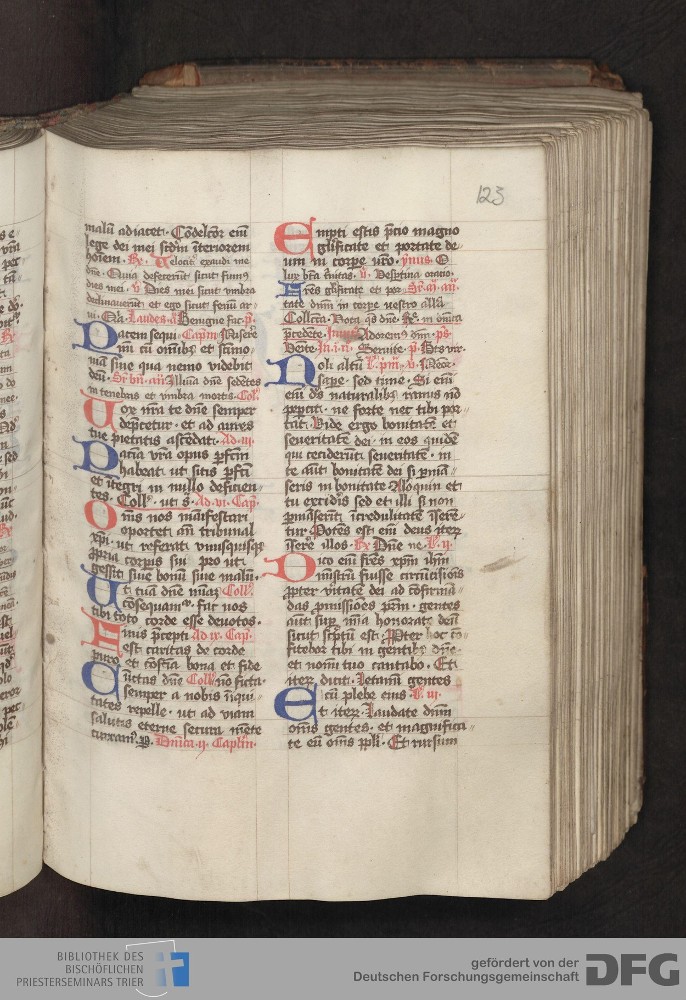 123
malū adiacet · Cōdelctor eim
lege dei mei scdm īteriorem
hoīem · Rx · Velocit exaudi me
dne · Quia defecerūt sicut fumus
dies mei · v Dies mei sicut vmbra
declinauerūt et ego sicut fenū ar
ui · Laudes · a Benigne fac · p
Pacem sequi · Capm Misere
mī cū omībus et scīmo
niā sine qua nemo videbit
deū · Illūia dne sedētes
in tenebris et vmbra mortis · Coll
Vox nra te dne semper
depcetur · et ad aures
tue pietatis ascēdat · Ad iii
Paciā vrā opus pfcm
habeat ut sitis pfcti
et itegri in nullo deficien
tes · Coll · ut s · Ad · vi · Cap
Oms nos maīfestari
oportet an tribunal
xpi · ut referat vnusquisq
ppria corpis sui pro ut
gessit siue bonū siue malū ·
Ut tuā dne miam Coll
cōsequamr · fac nos
tibi toto corde esse deuotos ·
Finis pcepti Ad ix · Cap
est caritas de corde
puro et cōscia bona et fide
Cūctas dne Coll nō ficta ·
semper a nobis iiqui
tates repelle · ut ad viam
salutis eterne secura mēte
curram · p · Dnica · ii · Capln ·
Empti estis pcio magno
glificate et portate de
um in corpe uro · ymus · O
lux bta tnitas · v · Vesptina oratio ·
Fres glificate et por
tate dnm in corpe uestro allā
Collcta · Vota qs dne · Rx · in omīta
pcedete · Adorem dnm · ps
Venite · Seruite · p · Bts vir ·
Noli altū
sape · sed time · Si eim
eim ds naturalibus ramis nō
pepcit · ne forte nec tibi par
cat · Vide ergo bonitatē et
seueritatē dei · in eos quidē
qui ceciderūt seueritatē · in
te aūt bonitatē dei si pmā
seris in bonitate Alioquin et
tu excidis sed et illi si non
pmāserit icredulitate iserē
tur · Potens est eim deus iterz
iserē illos · Rx Dne ne · L · ii
Dico eim fres xpm ihm
mistrū fuisse circūcisiois
ppter vitatē dei ad cōfirmā
das pmissiones prm · gentes
aūt sup mīa honorare deū
sicut scptū est · Pter hoc cō
fitebor tibi in gentibus dne
et nomī tuo cantabo · Et
iterz dicit · Letami gentes
cū plebe eius · L · iii
Et iterz · Laudate dnm
oms gentes · et magnifica
te eū oms ppli · Et rursum
BIBLIOTHEK DES
BISCHÖFLICHEN
PRIESTERSEMINARS TRIER
gefördert von der
Deutschen Forschungsgemeinschaft DFG